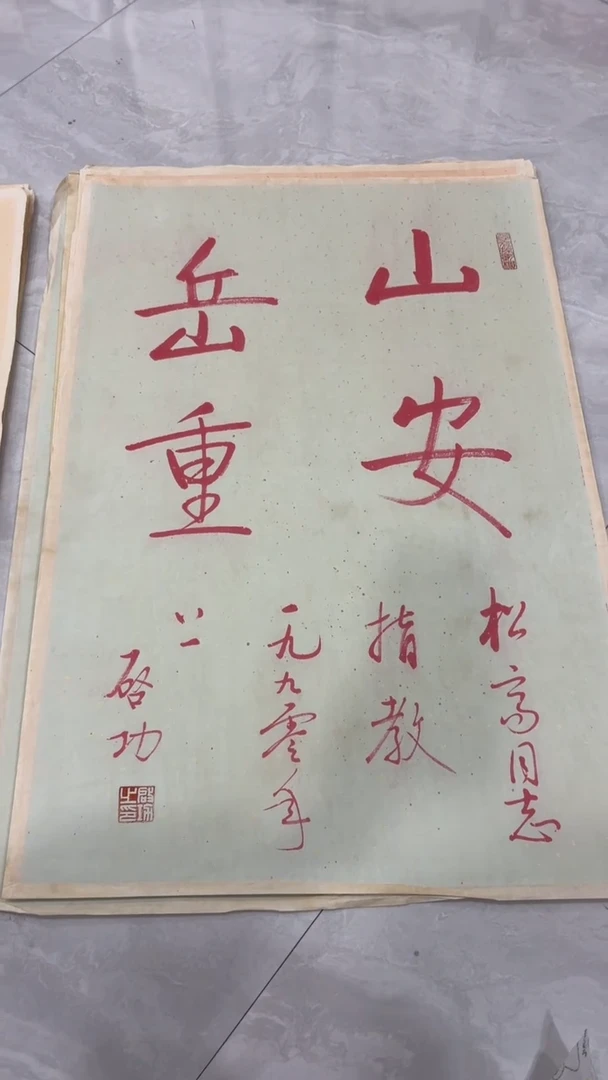 山安
岳重
松高同志
指教
一九九零年
启功
启功之印